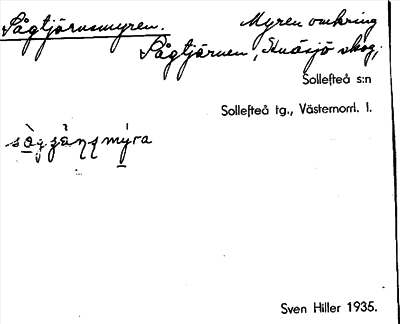 Sågtjärnsmyren. Myren omkring
Sågtjärnen, Skuåsjö skog,
Sollefteå s:n
Sollefteå tg., Västernorrl. l.
Sven Hiller 1935.